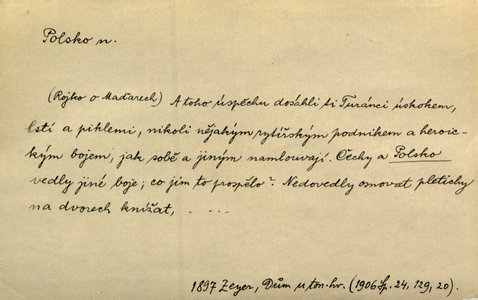 Polsko n.
(Rojko o Maďarech) A toho úspěchu dosáhli ti Turánci úskokem,
lstí a piklemi, nikoli nějakým rytířským podnikem a heroic-
kým bojem, jak sobě a jiným namlouvají. Čechy a Polsko
vedly jiné boje; co jim to prospělo? Nedovedly osnovat pletichy
na dvorech knížat, . . . .
1897 Zeyer, Dům u ton. hv. (1906 Sp. 24, 129, 20).